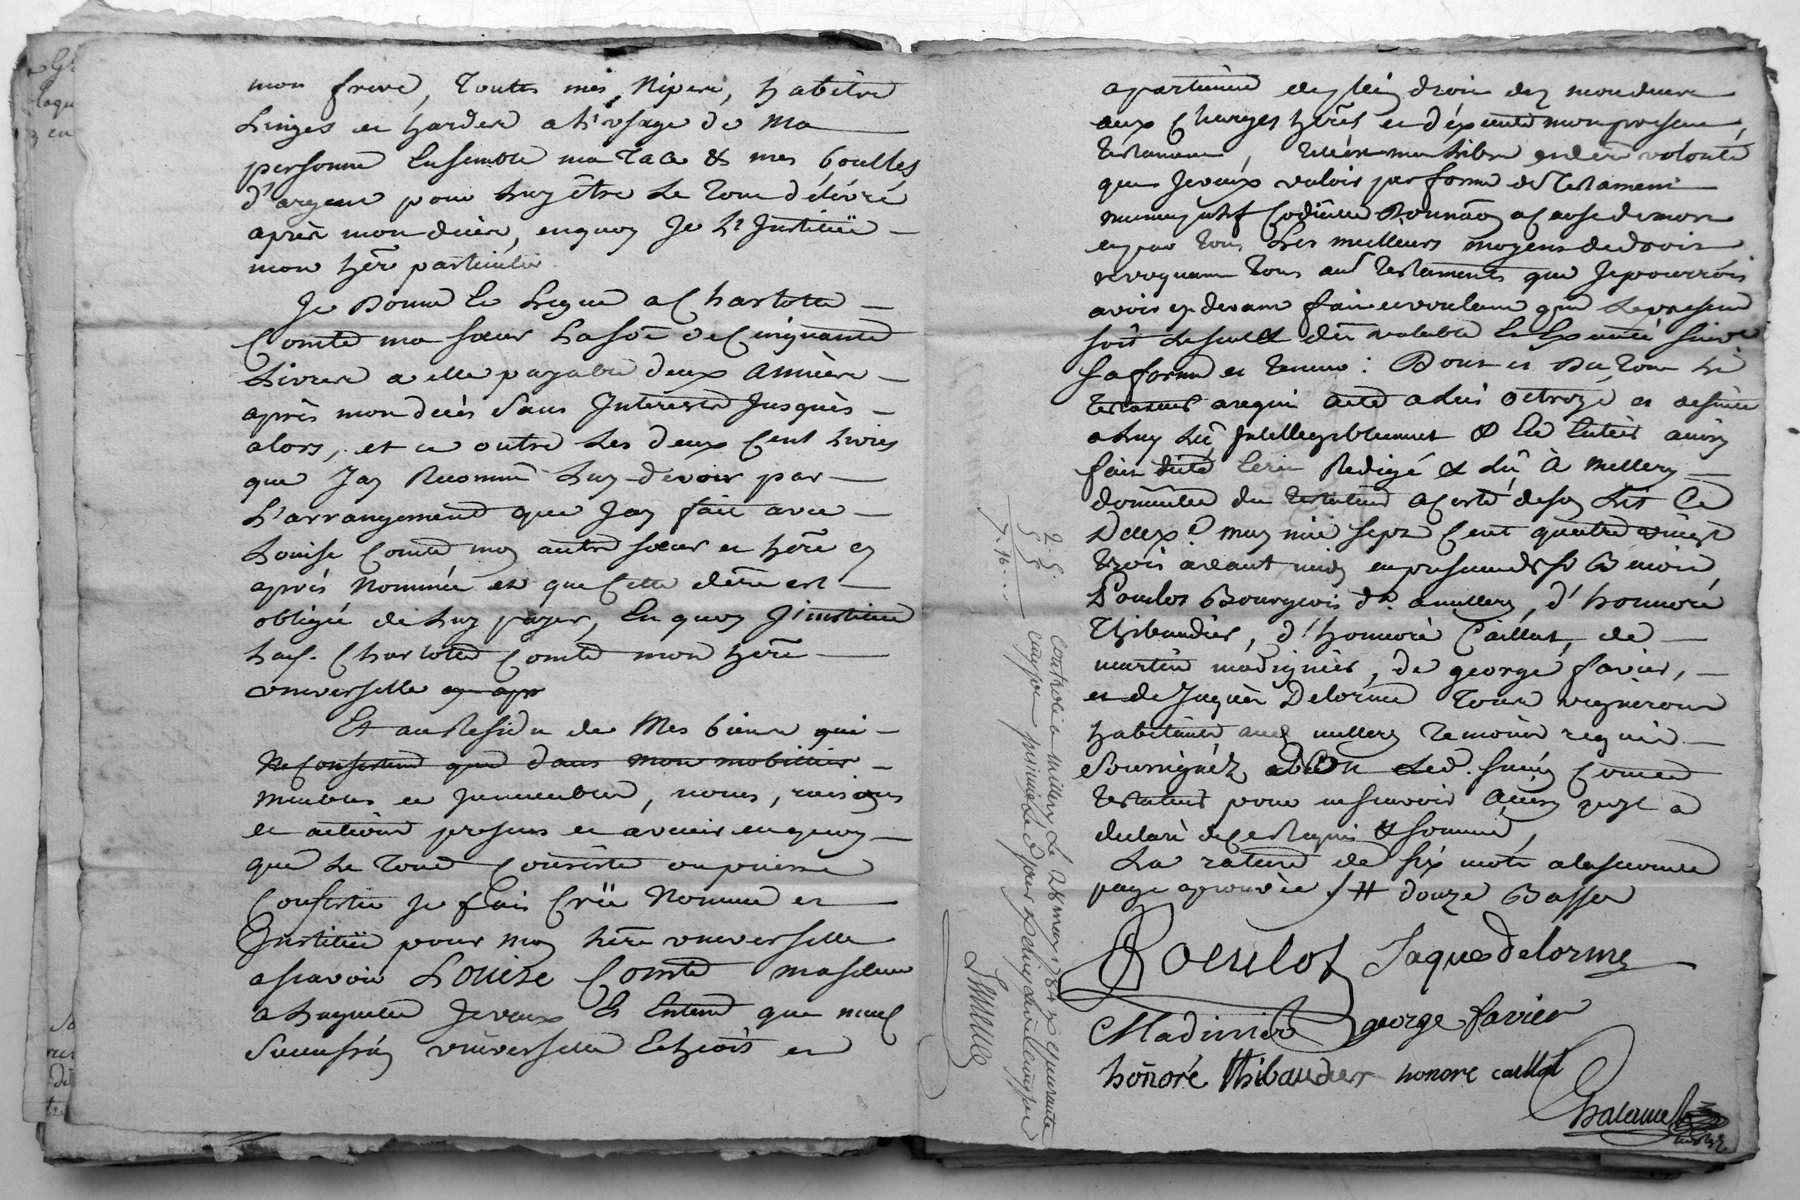 mon frere, toutes mes Nipes, habitts
Linges et hardes a l'usage de Ma
personne Ensemble ma Tace & mes boucles
d'argent pour Luy être Le tout délivré
après mon decès, enquoy Je L'Justitüe
mon hëre particulier
Je Donne Et Legue a Charlotte
Comte ma sœur La sõe de Cinquante
Livres a elle payable deux Années
après mon decès sans Interests Jusques
alors, et ce outre Les deux Cent Livres
que Jay Reconnu Luy devoir par
L'arrangement que Jay fait avec
Louise Comte moy autre sœur et hëre cy
après Nommée et que Cette dëre est
obligée de Luy payer, En quoy J'institue
lad. Charlotte Comte mon hëre
universelle
Et au Residu de Mes biens qui
Ne Consistent que dans mon mobillier
Meubles et Jmmeubles, noms, raisons
et actions presens et avenir en quoy
que Le Tout Consiste ou puisse
Consister Je fais Crëe Nomme et
Institüe pour moy hëre universelle
ascavoir Louise Comte masœur
a Laquelle Je veux Et Entend que mad.
Succession universelle Echeoit et
apartienne de plein droit dez mon deces
aux Charges hëres et d'éxecuter mon present
testament, telle est ma libre et dere volonté
que Je veux valoir par forme de Testament
nuncupatif Codicille Donnaõn a Cause de mort
et par tous Les meilleurs moyens de droit
revoquant tous aut. testaments que Je pourrois
avoir cy devant fait et voulant que Le present
soit Le seul & dër valable Et Executé suivt
Sa forme et teneur: Dont et Du tout Le
testateur a requi acte a lui octroyé et
a Luy Lû Jntelligiblement & En Entier ainsy
fait dicté Ecrit Redigé & Lû À Millery
domicille du testateur a Coté de son Lit Ce
Deux e. may mil sept Cent quatre vingt
trois avant midy en presence de Sr Benoit
Boulot Bourgeois dt. a millery, d'honnoré
Thibaudier, d'honnoré Caillot, de
martin madignier, de george favier,
et de Jaques Delorme Tous vignerons
habitants aud. millery temoins requis
Soussignéz Led. Comte
testateur pour ne scavoir Ainsy quil a
declaré de Ce Requis & sommé,
La rature de six mots a la seconde
page aprouvée douze
Boulot Jaques delorme
Madinier george favier
honoré thibaudier honore caillot
2. 5.
5. 5
7. 10...
Controlé a millery Le 26 may 1784